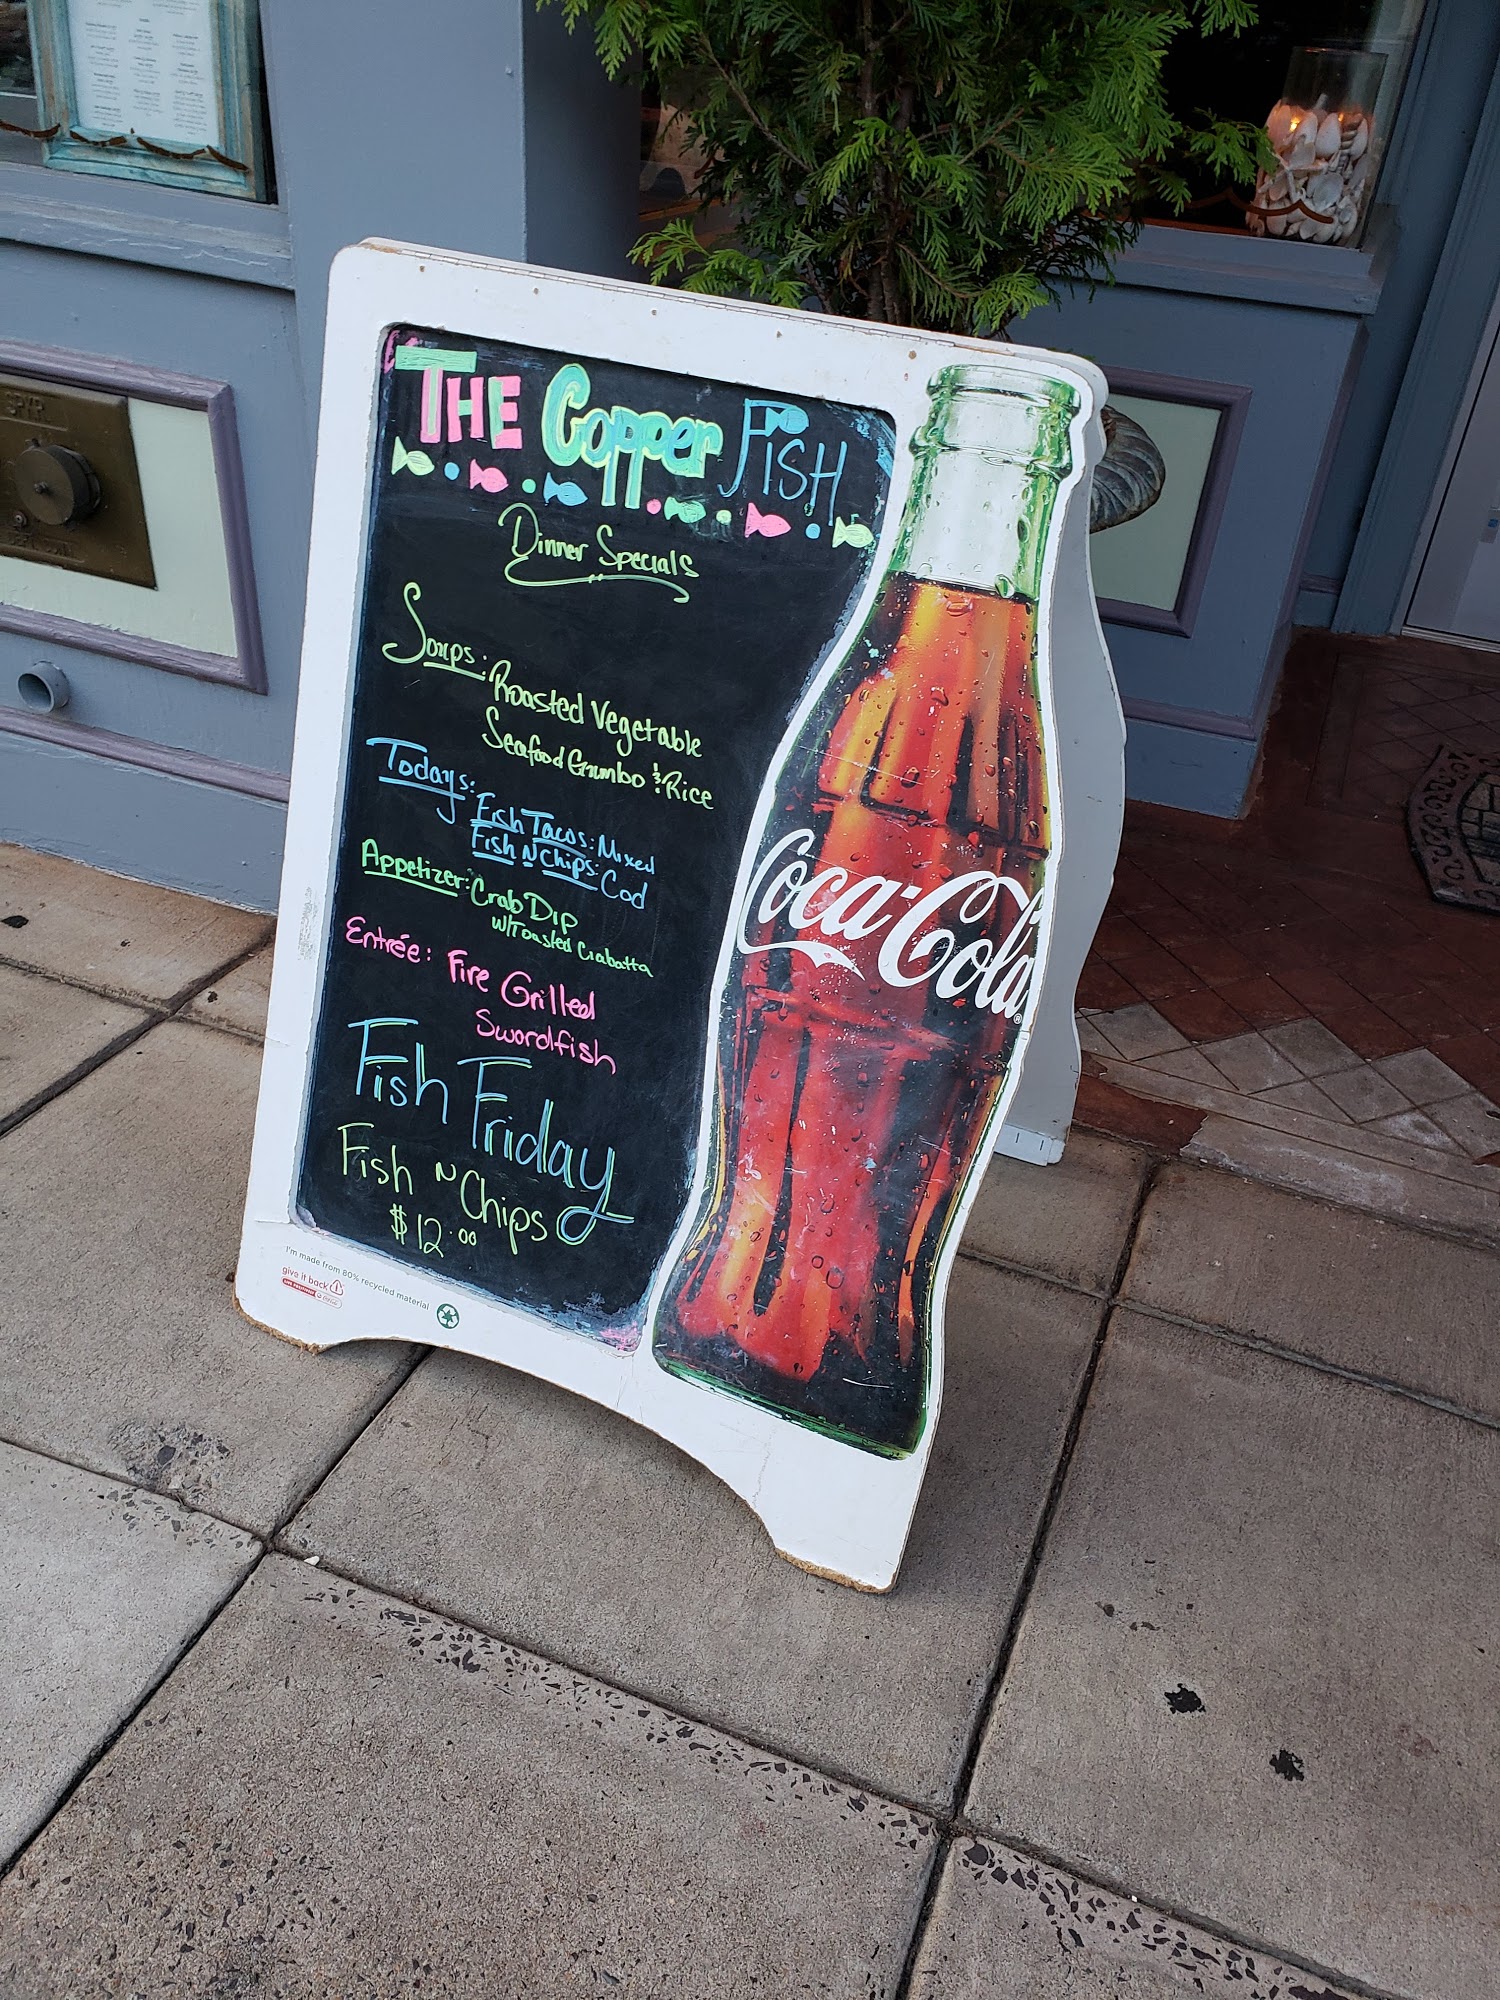 THE Copper FISH
Dinner Specials
Soups: Roasted Vegetable
Seafood Gumbo & Rice
Todays: Fish Tacos: Mixed
Fish N Chips: Cod
Appetizer: Crab Dip
w/Toasted Ciabatta
Entrée: Fire Grilled
Swordfish
Fish Friday
Fish N Chips
$12.00
Coca-Cola®
I'm made from 80% recycled material
give it back